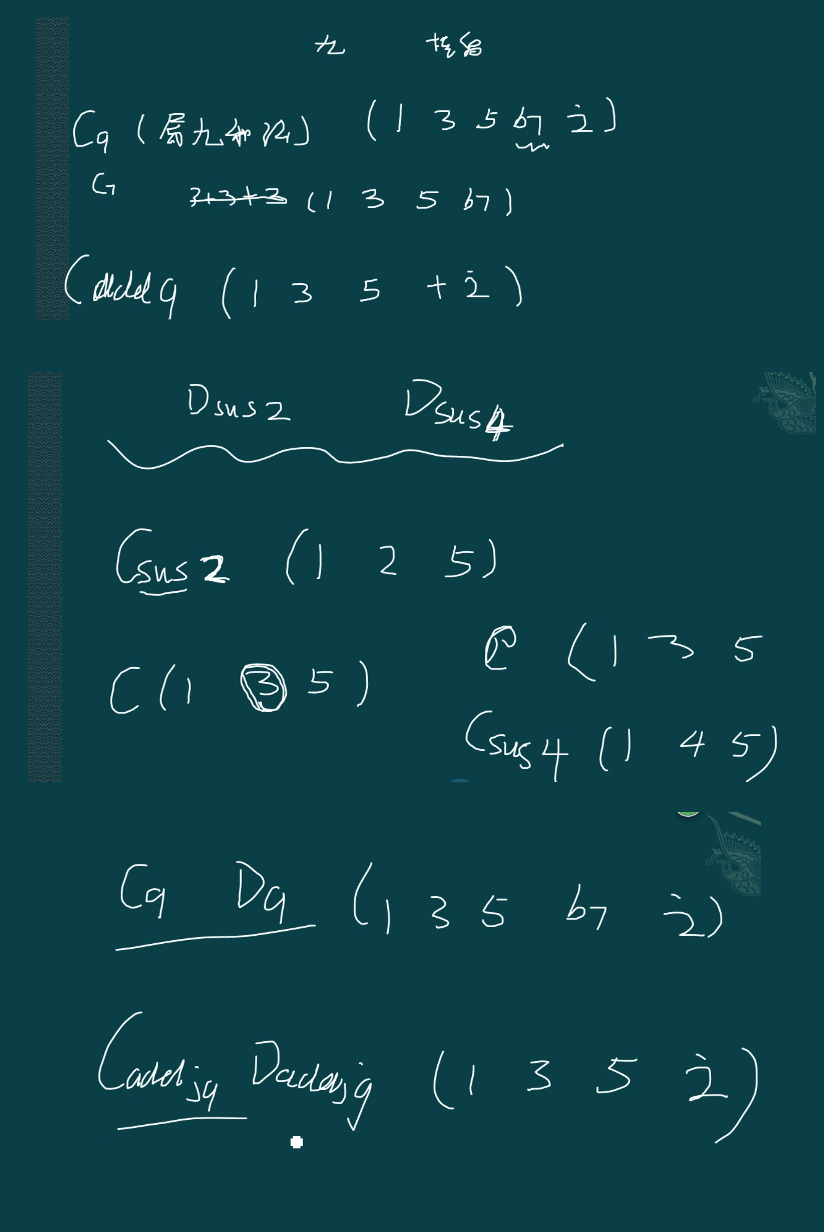 九 挂留
C9 (属九和弦) (1 3 5 b7 2̇)
G 3+3+3 (1 3 5 b7)
Cadd9 (1 3 5 + 2̇)
Dsus2 Dsus4
Csus2 (1 2 5)
C (1 3 5
C (1 3 5)
Csus4 (1 4 5)
C9 D9 (1 3 5 b7 2̇)
(1 3 5 2̇)